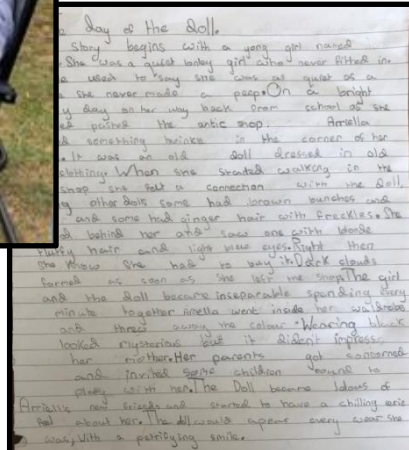 day of the doll.
story begins with a yong girl named
She was a quiet lonley girl who never fitted in.
used to say she was as quiet as a
she never made a peep. On a bright
day on her way back from school as she
passed the antic shop. Arriella
something twinke in the corner of her
It was an old doll dressed in old
clothing. When she started walking in the
shop she felt a connection with the doll.
other dolls some had brown bunches and
and some had ginger hair with freckles. She
behind her and saw one with blonde
fluffy hair and light blew eyes. Right then
she know she had to buy it. Dark clouds
formed as soon as she left the shop. The girl
and the doll became inseparable spending every
minute together Arrella went inside her waldrobe
and threw away the colour. Wearing black
looked mysterious but it dident impress
her mother. Her parents got concerned
and invited some children round to
play with her. The Doll became Jelous of
Arriella's new friends and started to have a chilling erie
feel about her. The doll would apear every wear she
was, With a petrifying smile.